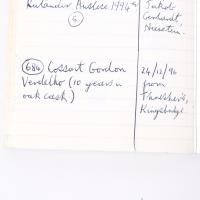 Rulander Auslese 1994
Jakob
(6)
Gerhardt,
Nierstein.
(684) Cossart Gordon
Verdelho (10 years in
oak cask)
24/12/96
from
Thresher's,
Kingsbridge.